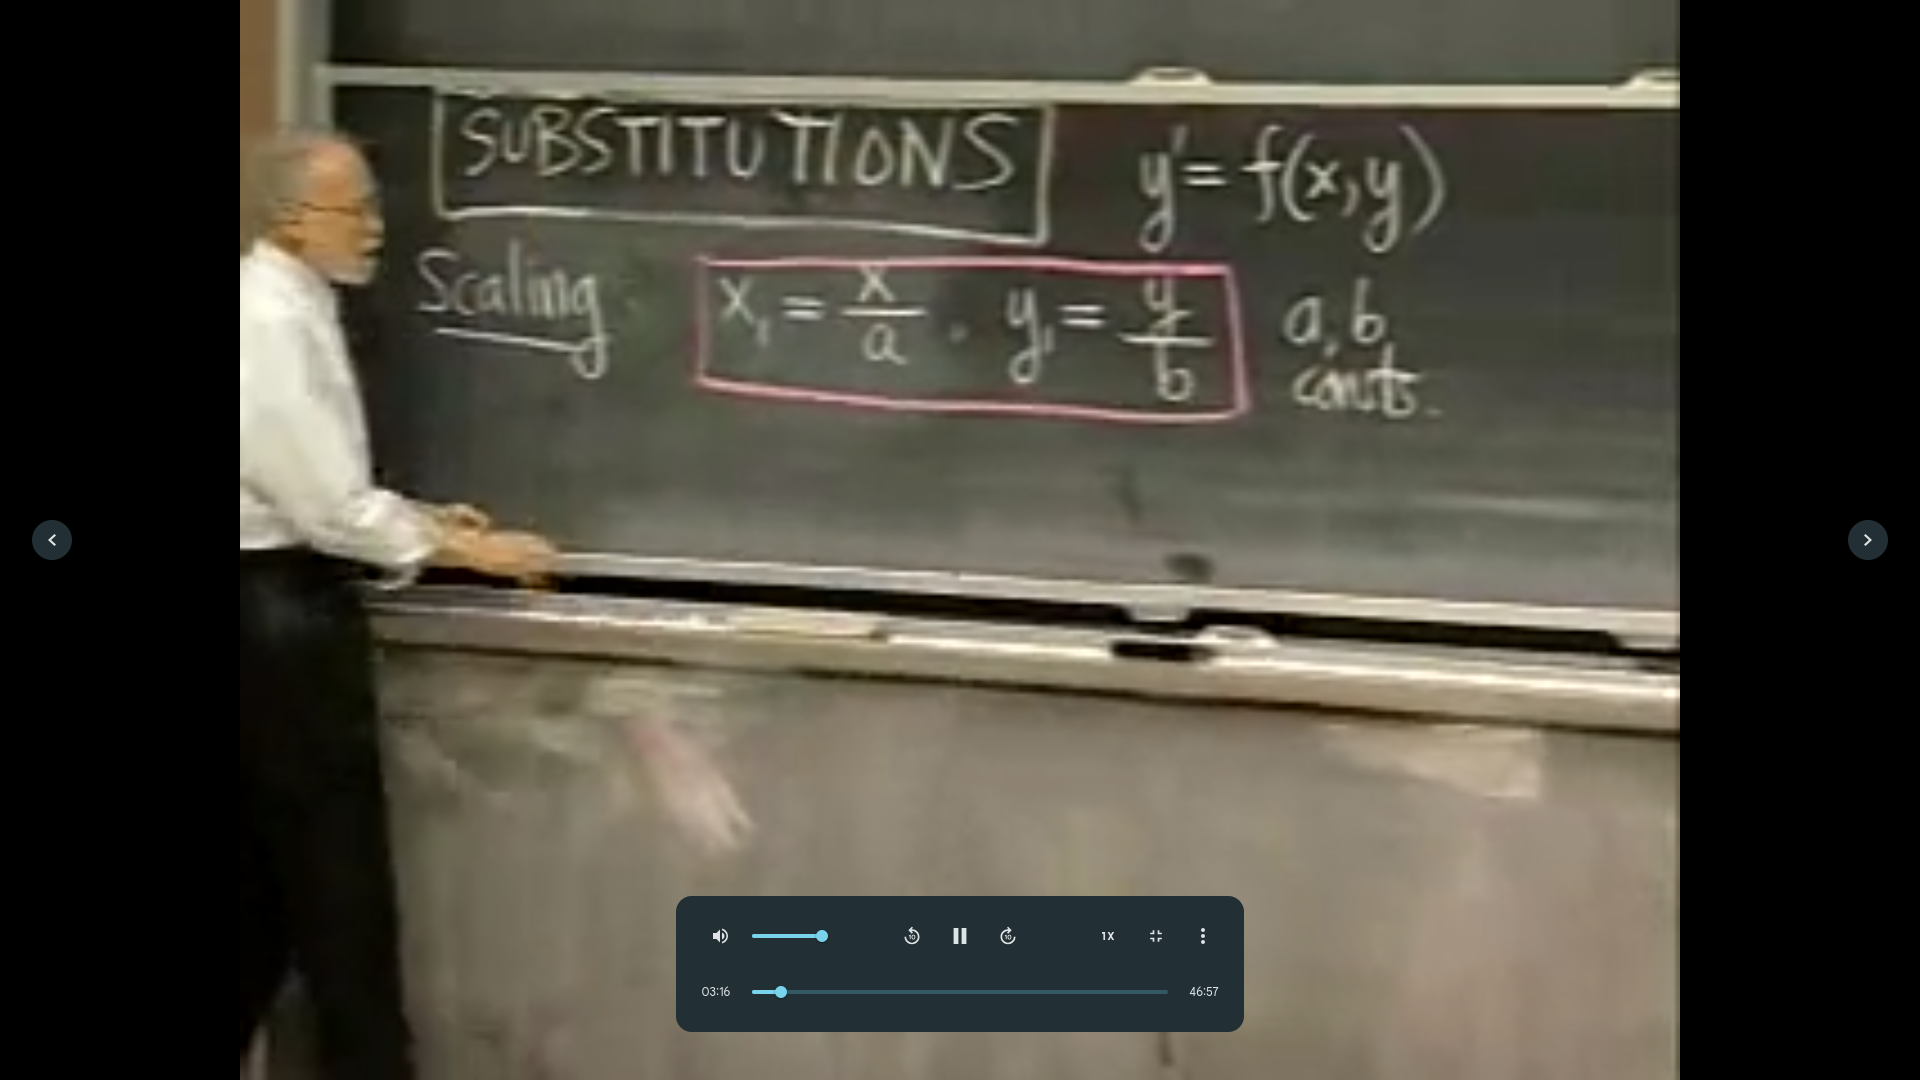 SUBSTITUTIONS y' = f(x,y)
Scaling x₁ = x/a . y₁ = y/b a, b
consts.
10 10 1X
03:16 46:57